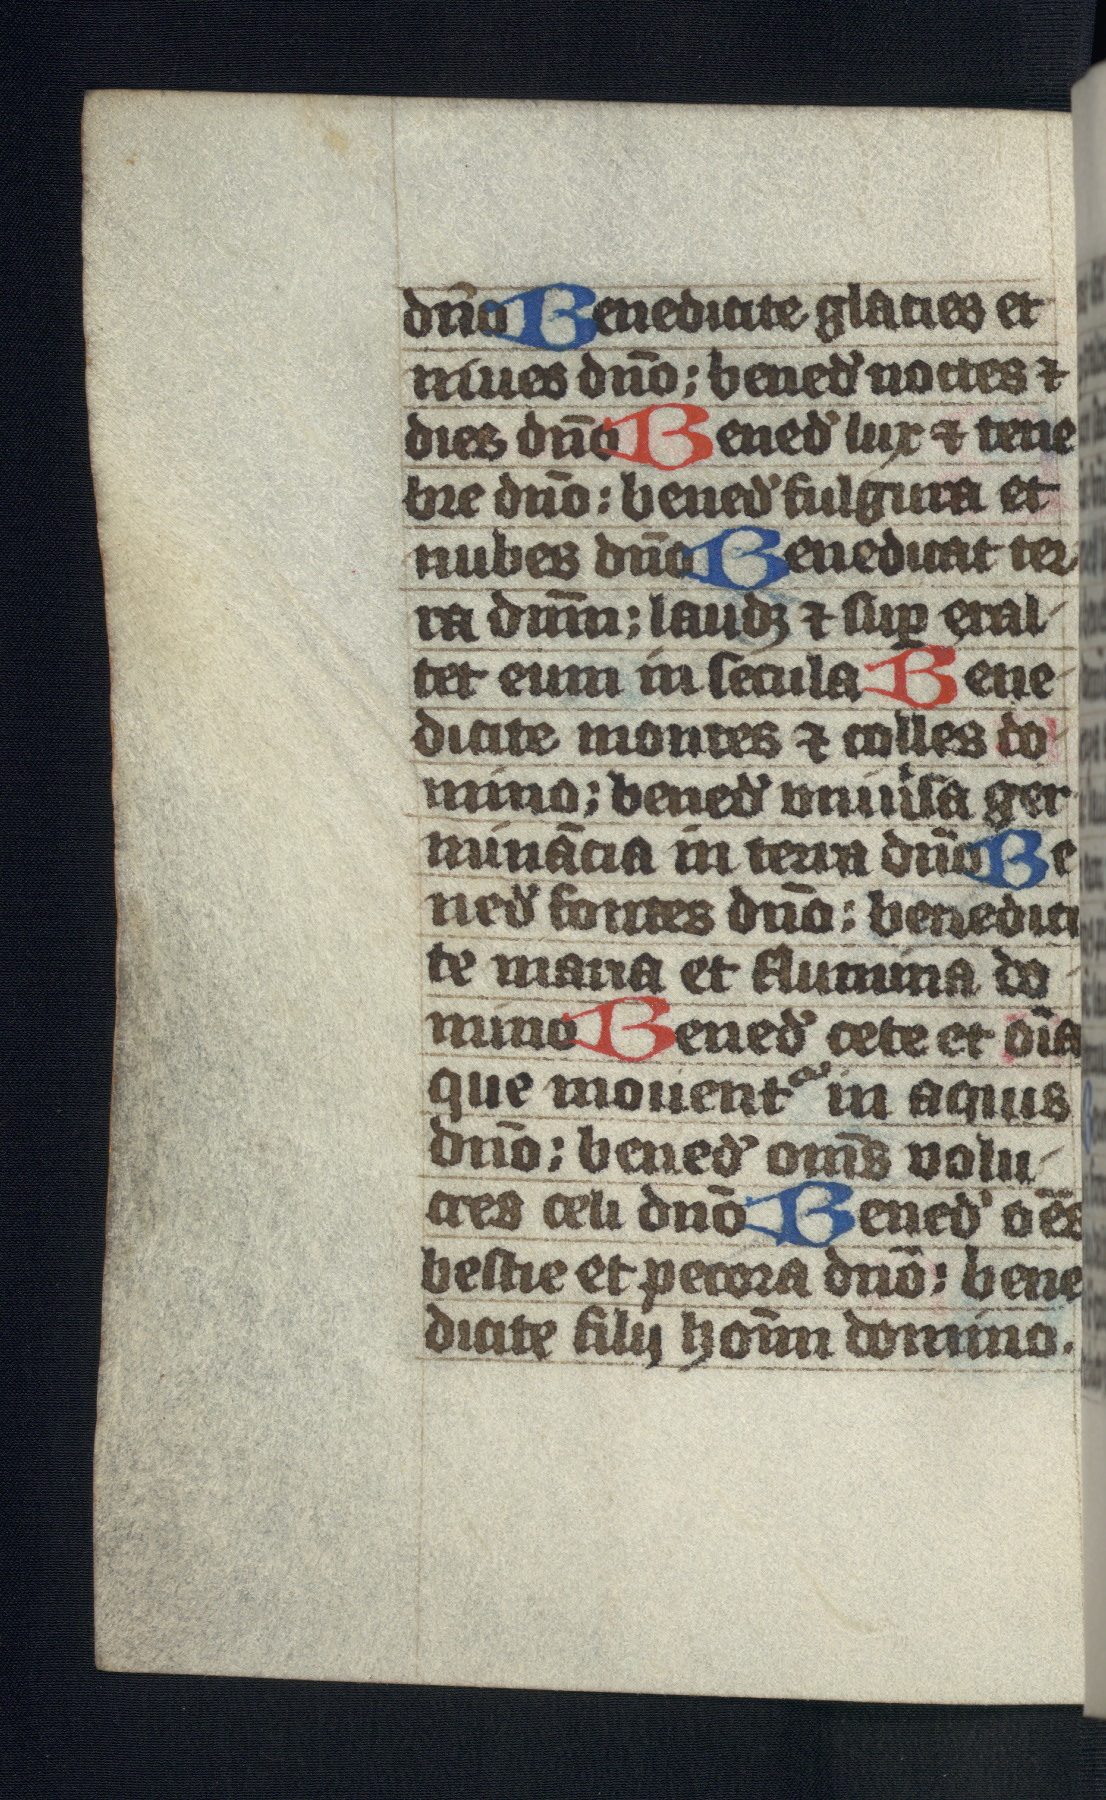 dño Benedicite glacies et
niues dño; bened̉ noctes ⁊
dies dño Bened̉ lux ⁊ tene
bre dño: bened̉ fulgura et
nubes dño Benedicat ter
ra dn̄m; laudꝫ ⁊ suꝑ exal
tet eum in secula Bene
dicite montes ⁊ colles do
mino; bened̉ vniu̓sa ger
minācia in terra dño Be
ned̉ fontes dño: benedici
te maria et flumina do
mino Bened̉ cete et oīa
que mouent᷑ in aquis
dño; bened̉ om̄s volu
cres celi dño Bened̉ oēs
bestie et pecora dño: bene
dicite filij hoīm domino.